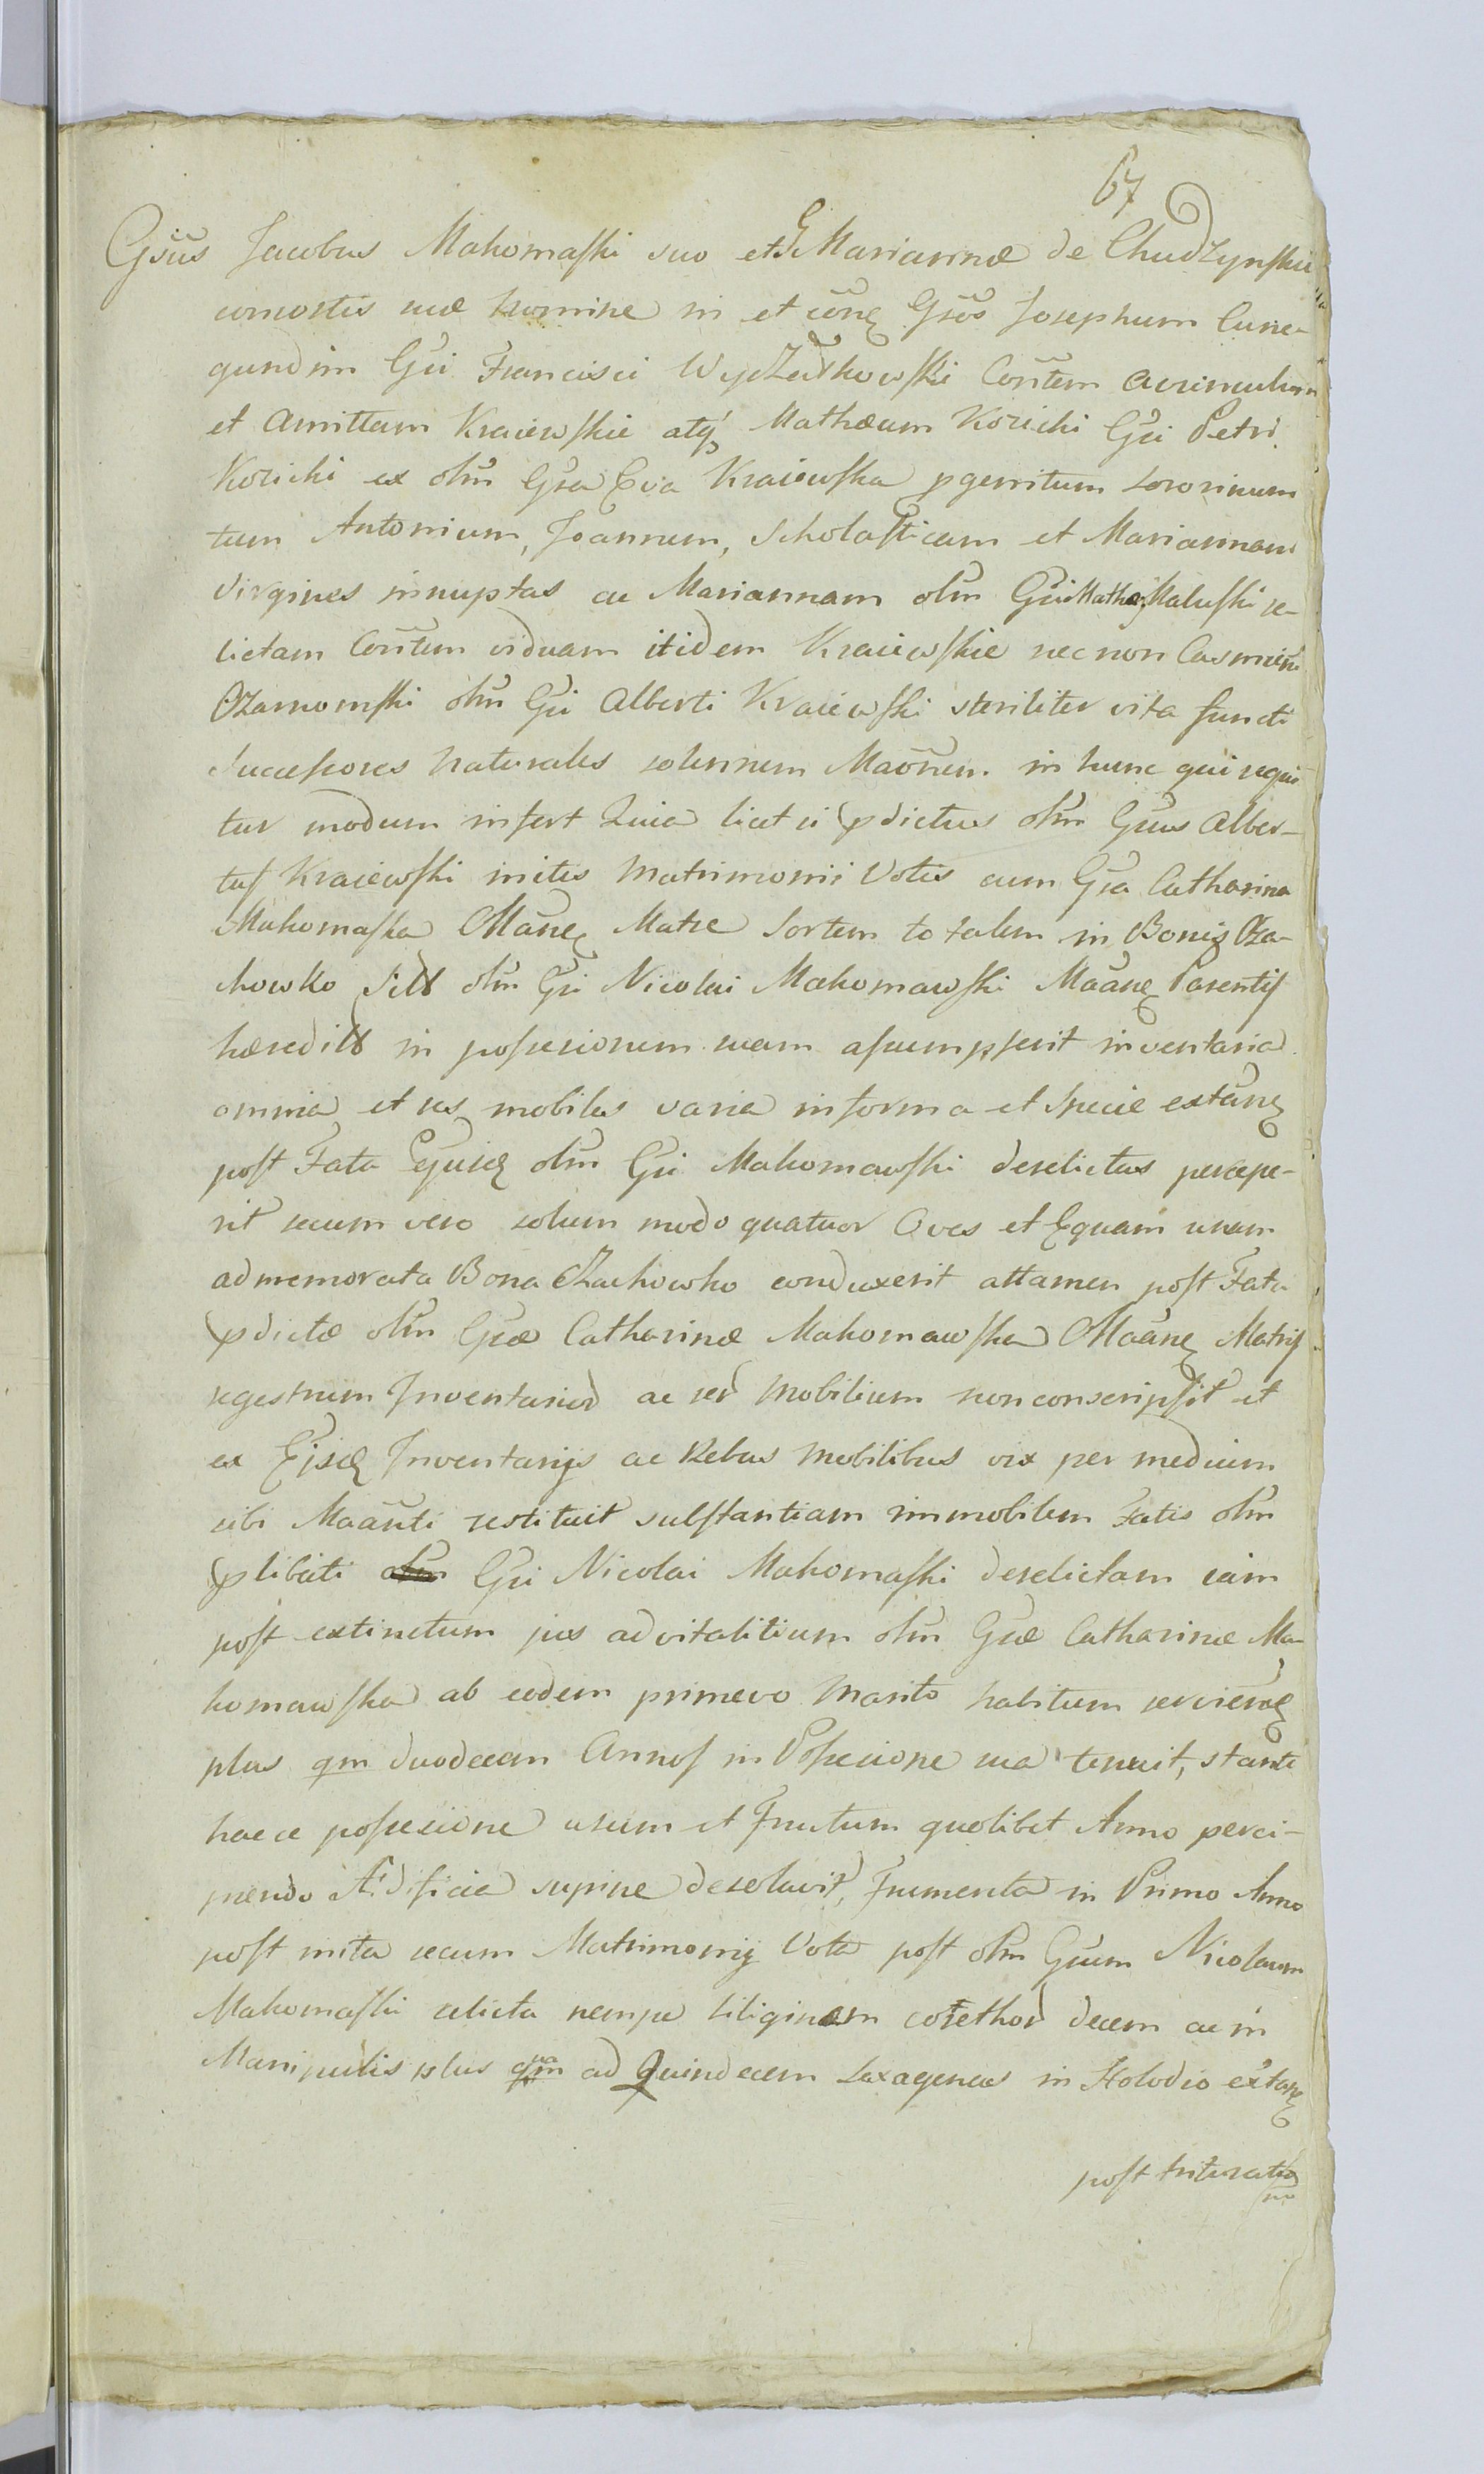 67
Gsus Jacobus Makomaski suo et G Mariannæ de Chudzynskie
consortis suæ nomine in et coñe Gsos Josephum Cune-
gundim Gsi Francisci Wyczałkowski Contem avunculum
et Amittam Kraiewskie atq Mathæum Kozicki Gsi Petri
Kozicki ex olim Gsa Eva Kraiewska pgenitum sororinum
tum Antonium, Joannem, Scholasticam et Mariannam
virgines innuptas ac Mariannam olim Gsi Mathæi Maluski re-
lictam Contem viduam itidem Kraiewskie nec non Casmirū
Czarnomski olim Gsi Alberti Kraiewski steriliter vita functi
Successores naturales solennem Maōnem. in hunc qui sequi
tur modum infert Quia licet is pdictus olim Gsus Alber-
tus Kraiewski initis Matrimonii Votis cum Gsa Catharina
Makomaska Maāne Matre Sortem totalem in Bonis Cza-
chowko olim Gsi Nicolai Makomawski Maāne Parentis
in possesionem suam assumpserit inventaria
omnia et res mobiles varia in forma et specie extāne
post Fata Ejusd olim Gsi Makomawski derelictas percepe-
rit secum vero solum modo quatuor Oves et Equam unam
ad memorata Bona Czachowko conduxerit attamen post Fata
pdictæ olim Gsæ Catharinæ Makomawska Maāne Matris
regestrum Inventarior ac rer Mobilium non conscripsit et
ex Ejsd Inventarijs ac Rebus Mobilibus vix per medium
sibi Maānti restituit substantiam immobilem Fatis olim
plibati olim Gsi Nicolai Makomaski derelictam iam
post extinctum jus advitalitium olim Gsæ Catharinæ Ma-
komawska ab eodem primevo Marito habitum serviēne
plus qm duodecim Annos in Possesione sua tenuit, stante
haece possesione usum et Fructum quolibet Anno perci-
piendo Ædificia supine desolavit, Frumenta in Primo Anno
post inita secum Matrimonij Vota post olim Gsum Nicolaum
Makomaski relicta nempe siliginem corethor decem ac in
Manipulis plus qm ad Quindecem Saxagenas in Holodio extane
post trituratio